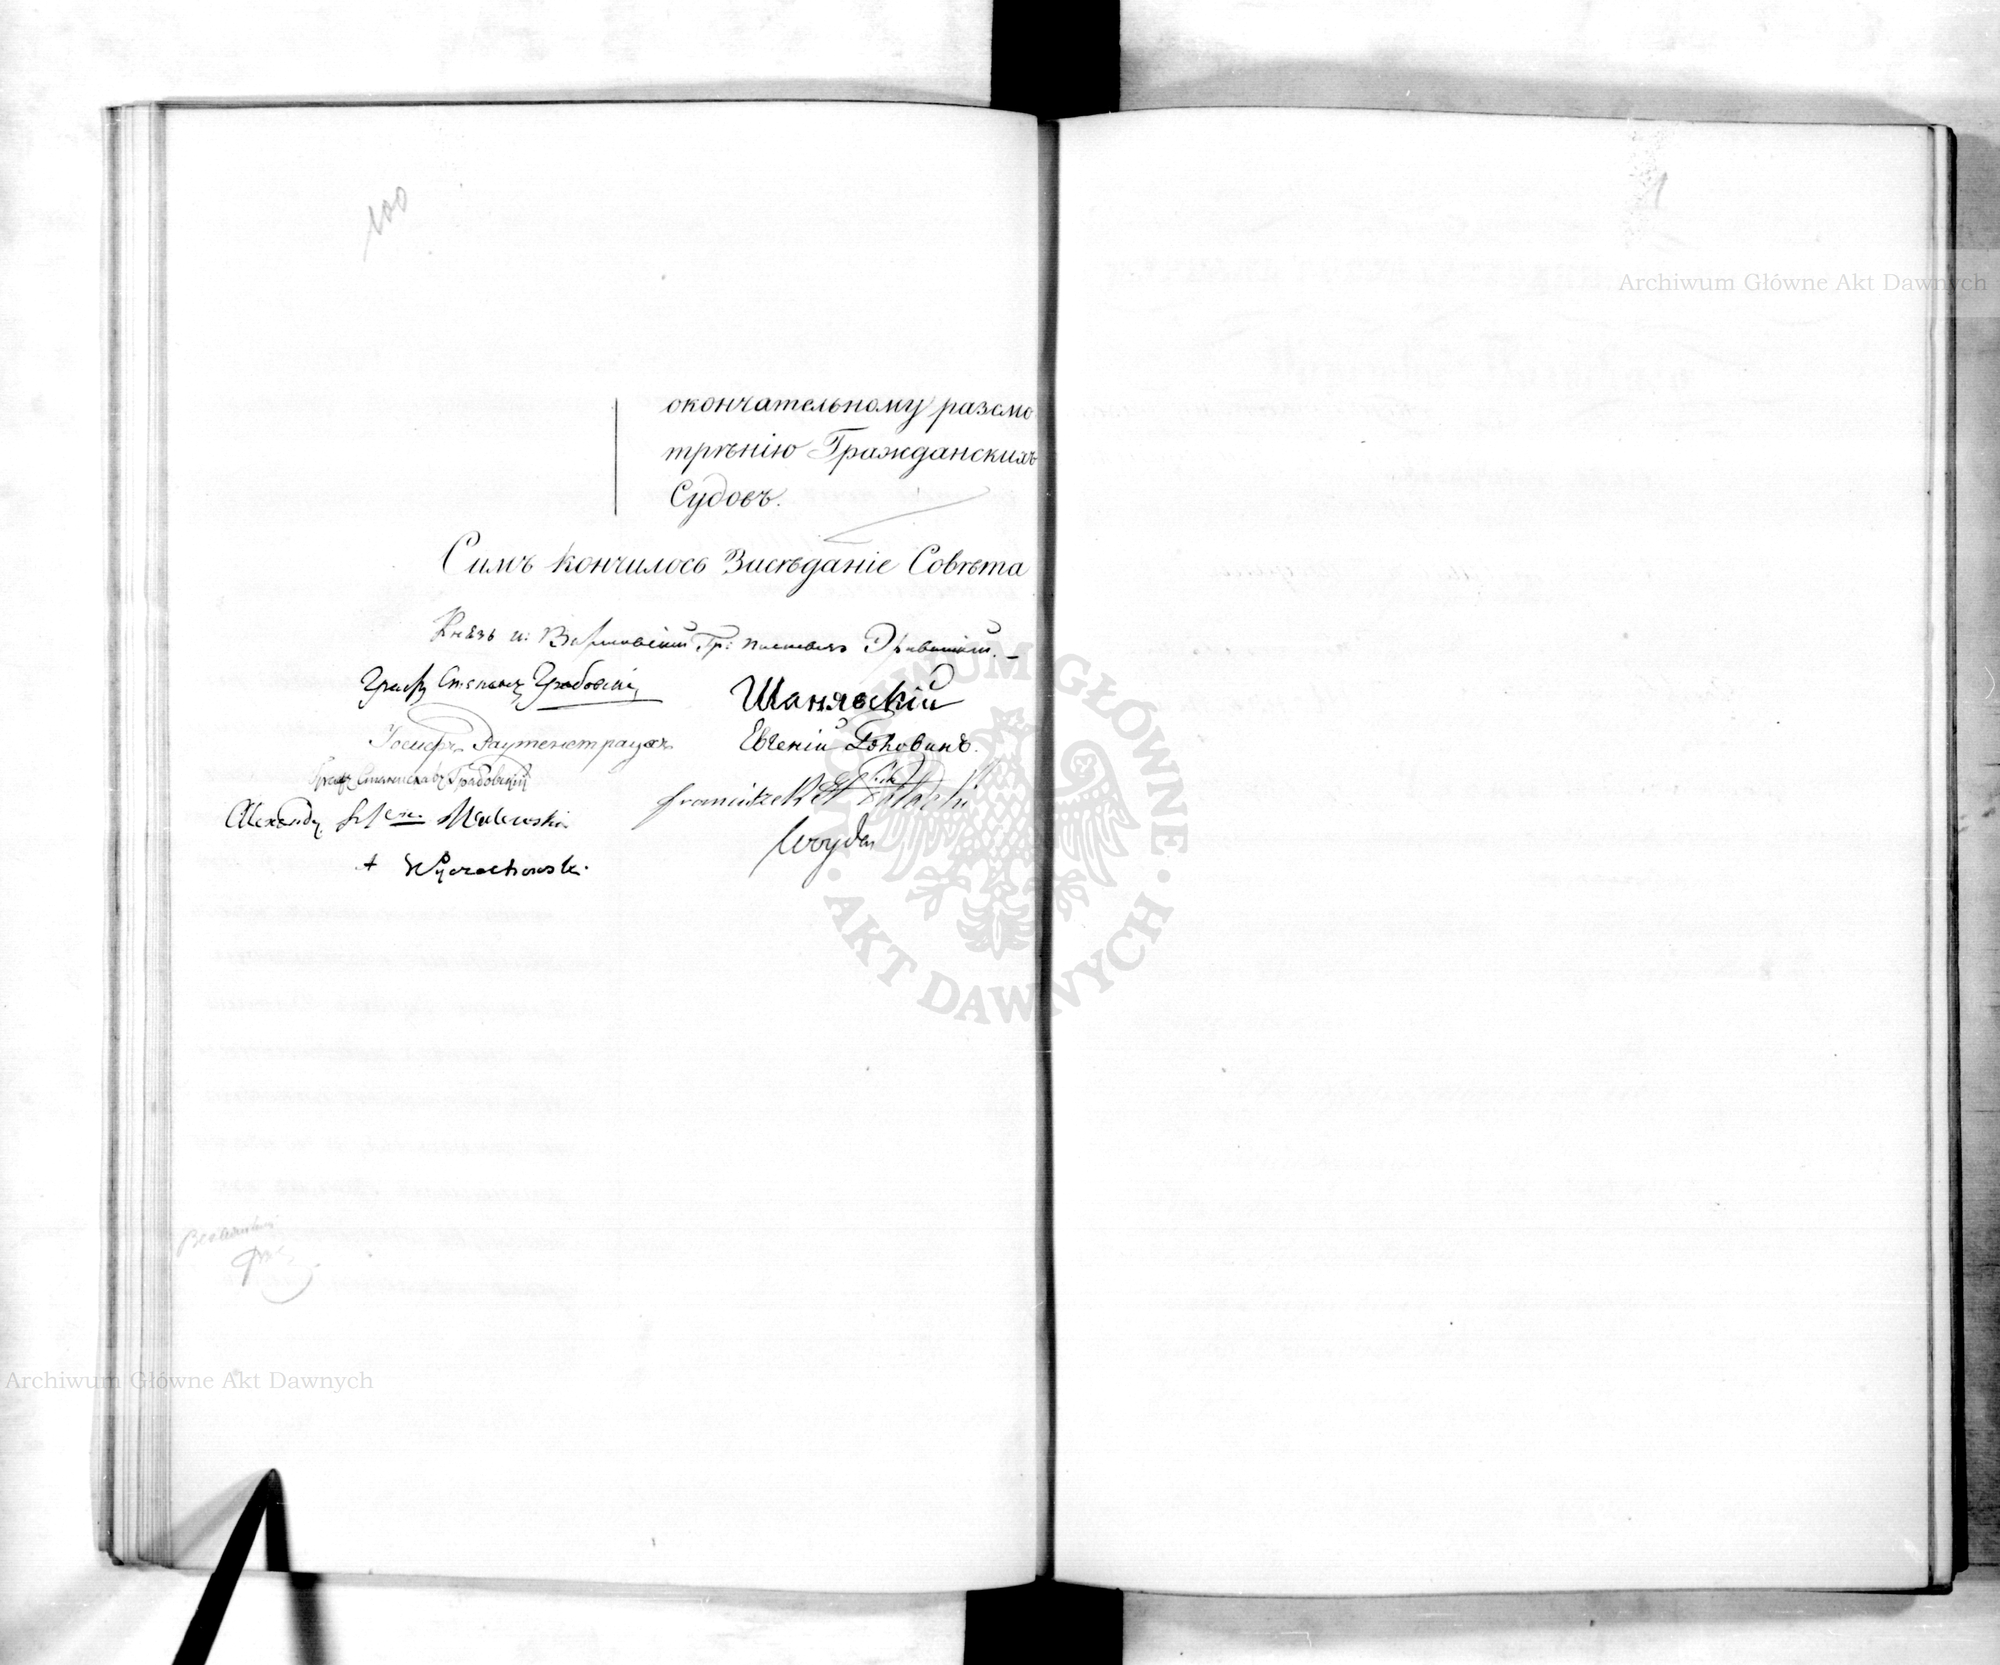 100
окончательному разсмо
трѣнію Гражданскихъ
Судовъ.
Симъ кончилось Засѣданіе Совѣта
Князь и: Варшавскій Гр: Паскевичъ Эриванскій.
Графъ Стефанъ Грабовскій
Шанявскій
Іосифъ Раутенстраухъ
Евгеній Головинъ.
Графъ Станиславъ Грабовскій
Franciszek
Alexander Malewski
Woyda
A Wyczechowski.
1
Archiwum Główne Akt Dawnych
ARCHIWUM GŁÓWNE
· AKT DAWNYCH ·
Archiwum Główne Akt Dawnych